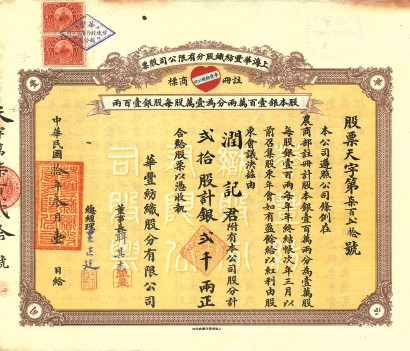 上海華豐紡織股分有限公司股票
註冊商標
股本銀壹百萬兩分為壹萬股每股銀壹百兩
股票天字第柒百
號
本公司遵照公司條例在
農商部註冊計股本銀壹百萬兩分為壹萬股
每股銀壹百兩每年年終結帳次年三月以
前召集股東年會如有盈餘給以紅利由股
東會議決茲由
潤記君附有本公司股分計
貳拾股計銀貳千兩正
合給股票以憑收執
華豐紡織股分有限公司
董事長
總經理
中華民國拾年 月 日給